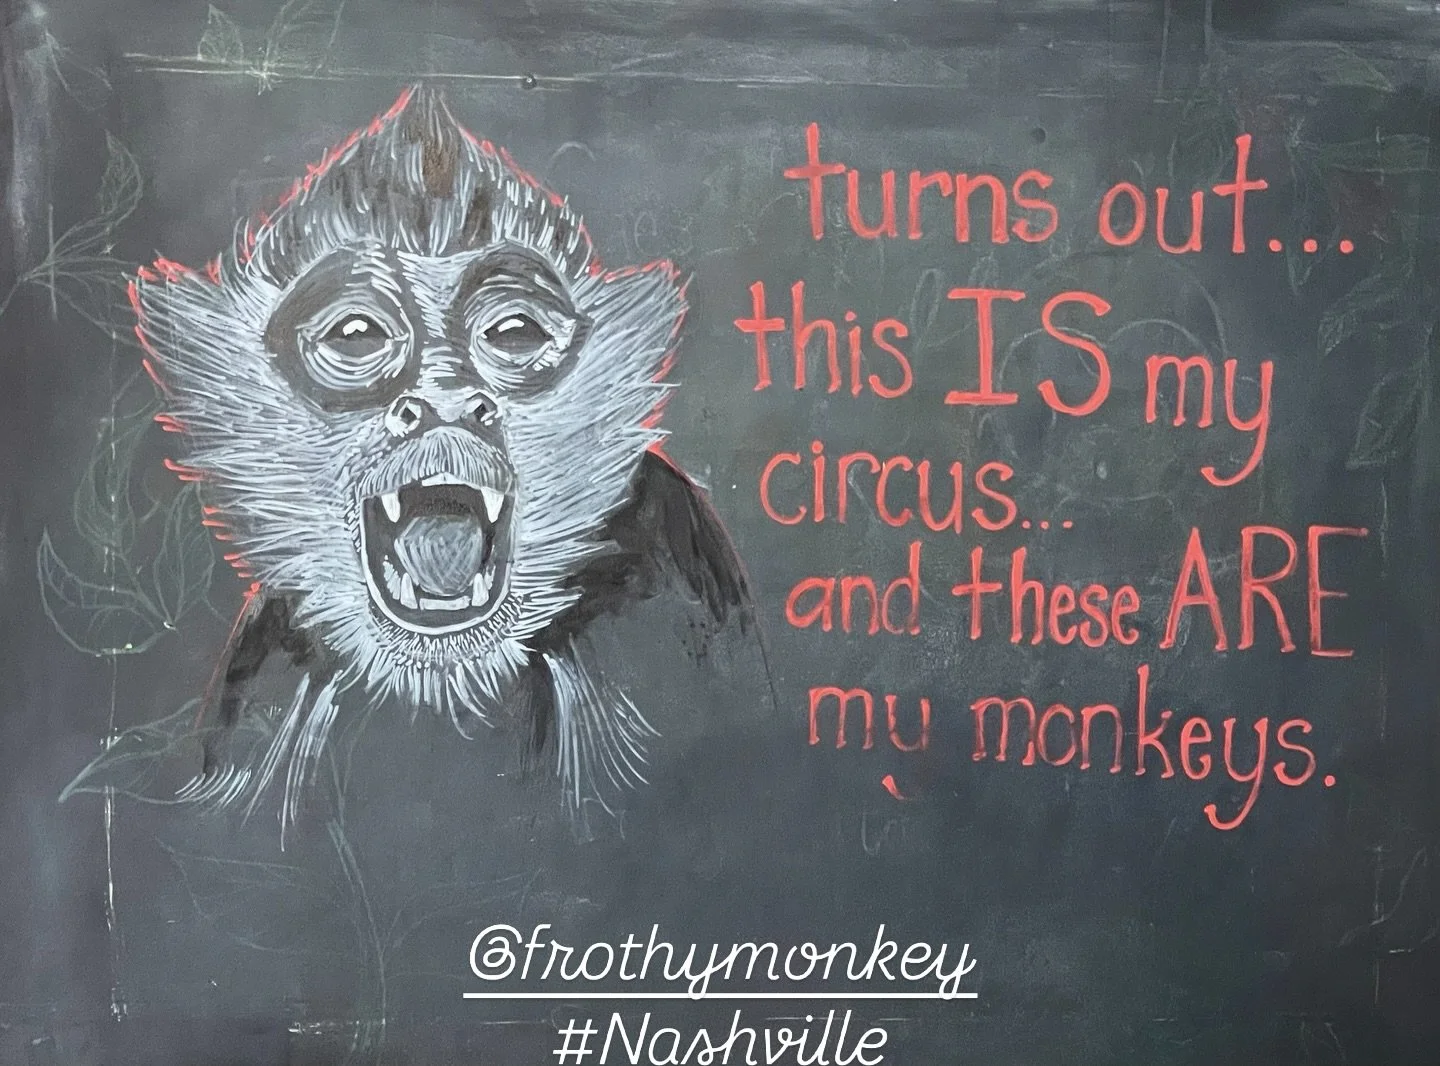 turns out...
this IS my
circus...
and these ARE
my monkeys.
@frothymonkey
#Nashville